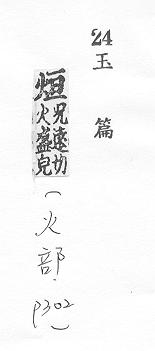 24
玉篇
烜 兄遠切
火盛皃
(火部.
P302)